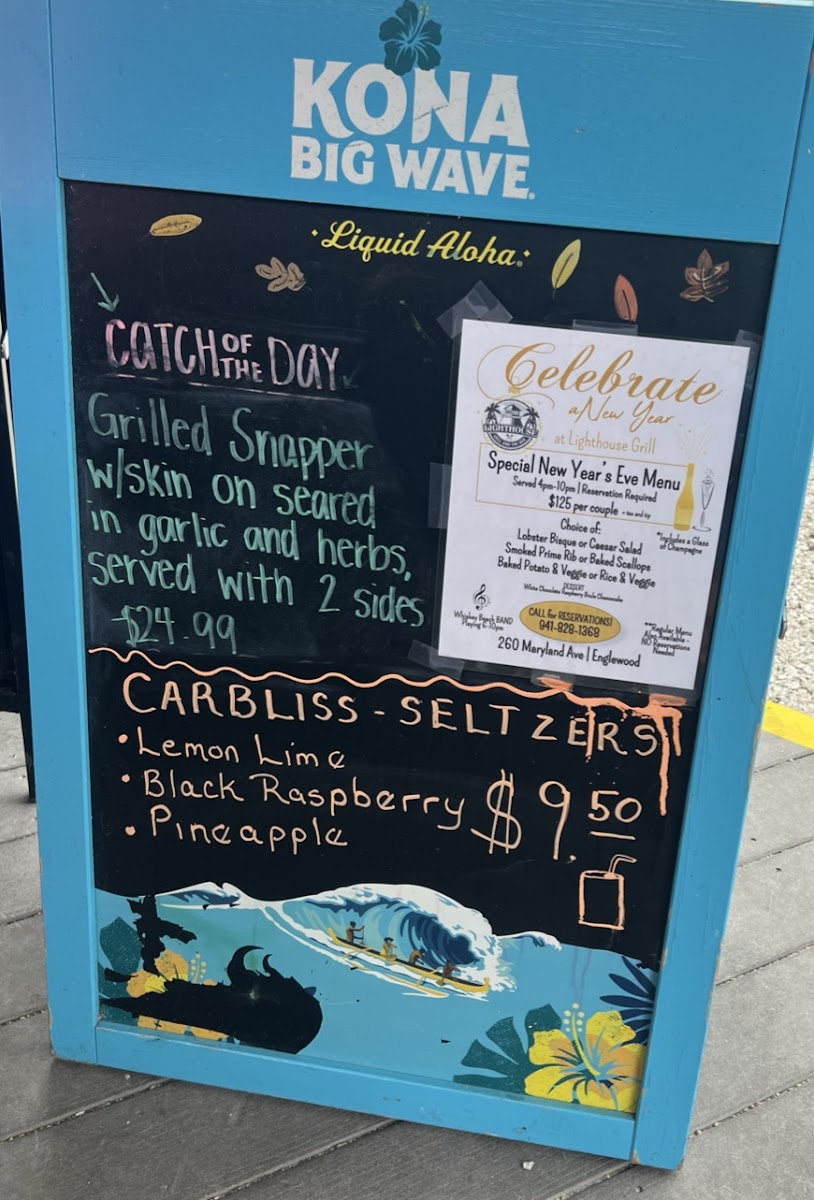 KONA
BIG WAVE
Liquid Aloha
CATCH OF THE DAY
Grilled Snapper
w/skin on seared
in garlic and herbs,
served with 2 sides
$24.99
Celebrate
a New Year
at Lighthouse Grill
LIGHTHOUSE
Special New Year's Eve Menu
Served 4pm-10pm | Reservation Required
$125 per couple + tax and tip
*Includes a Glass
of Champagne
Choice of:
Lobster Bisque or Caesar Salad
Smoked Prime Rib or Baked Scallops
Baked Potato & Veggie or Rice & Veggie
DESSERT
White Chocolate Raspberry Brule Cheesecake
Whiskey Beach BAND
Playing 6-10pm
CALL for RESERVATIONS!
941-828-1368
**Regular Menu
Also Available -
NO Reservations
Needed
260 Maryland Ave | Englewood
CARBLISS - SELTZERS
• Lemon Lime
• Black Raspberry
• Pineapple
$9.50